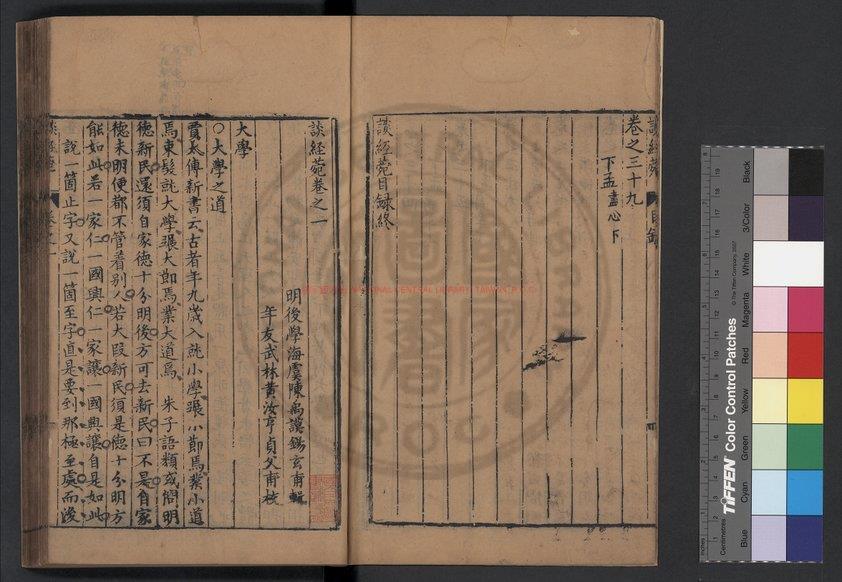 卷之三十九
下孟盡心下
談經菀目録終
談經菀卷之一
明後學海虞陳禹謨錫玄甫輯
年友武林黄汝亨貞父甫校
大學
○大學之道
賈長傅新書云古者年九歳入就小學蹍小節焉業小道
焉束髮就大學蹍大節焉業大道焉 朱子語類或問明
德新民還須自家德十分明後方可去新民曰不是自家
德未明便都不管着別人若大段新民須是德十分明方
能如此若一家仁一國興仁一家讓一國興讓自是如此
說一箇止字又說一箇至字直是要到那極至處而後
NATIONAL CENTRAL LIBRARY, TAIWAN R.O.C.
TIFFEN Color Control Patches
© The Tiffen Company, 2007
Centimetres
Inches
Blue
Cyan
Green
Yellow
Red
Magenta
White
3/Color
Black